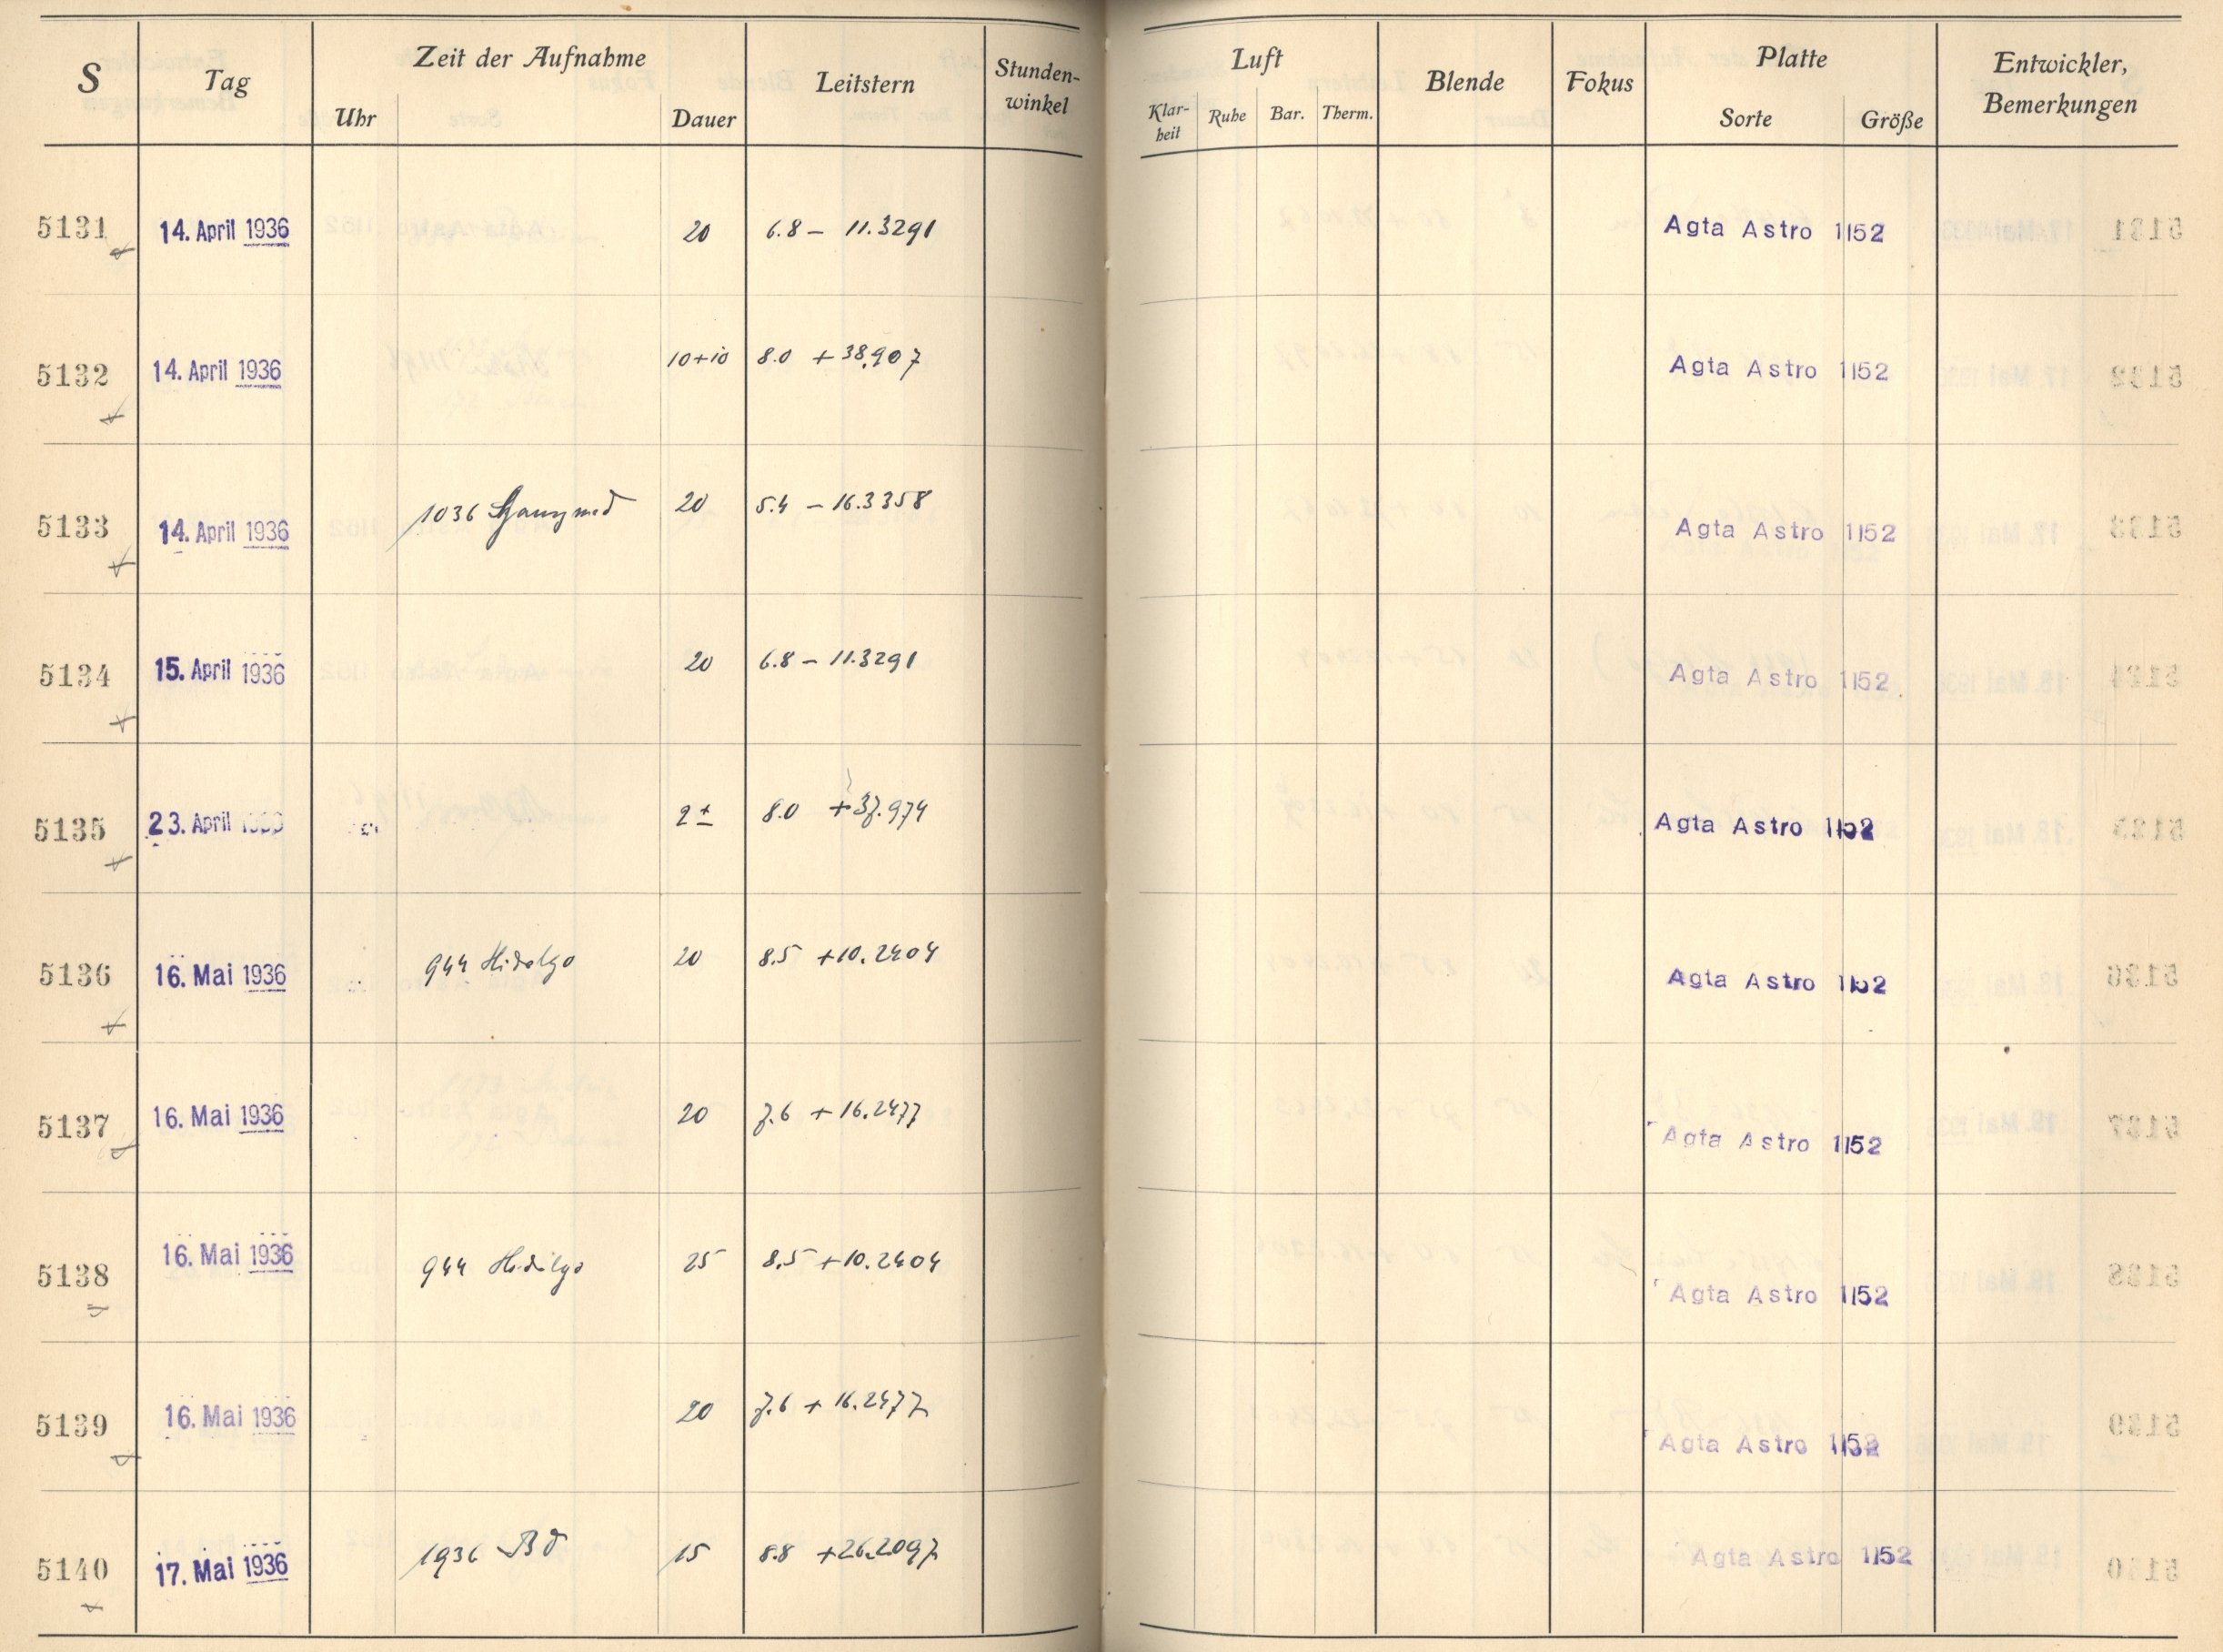 S Tag Zeit der Aufnahme Leitstern Stunden-winkel Luft Blende Fokus Platte Entwickler, Bemerkungen
Uhr Dauer Klar-heit Ruhe Bar. Therm. Sorte Größe
5131 14. April 1936 20 6.8 – 11.3291 Agta Astro 1152
5132 14. April 1936 10+10 8.0 +38.907 Agta Astro 1152
5133 14. April 1936 1036 Ganymed 20 5.4 – 16.3358 Agta Astro 1152
5134 15. April 1936 20 6.8 – 11.3291 Agta Astro 1152
5135 23. April 2± 8.0 +37.974 Agta Astro 1152
5136 16. Mai 1936 944 Hidalgo 20 8.5 +10.2404 Agta Astro 1152
5137 16. Mai 1936 20 7.6 + 16.2477 Agta Astro 1152
5138 16. Mai 1936 944 Hidalgo 25 8.5 +10.2404 Agta Astro 1152
5139 16. Mai 1936 20 7.6 + 16.2477 Agta Astro 1152
5140 17. Mai 1936 1936 15 8.8 +26.2097 Agta Astro 1152